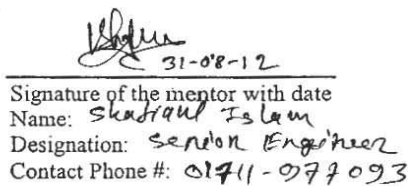 31-08-12
Signature of the mentor with date
Name: Shafiqul Islam
Designation: Senior Engineer
Contact Phone #: 01711-977093